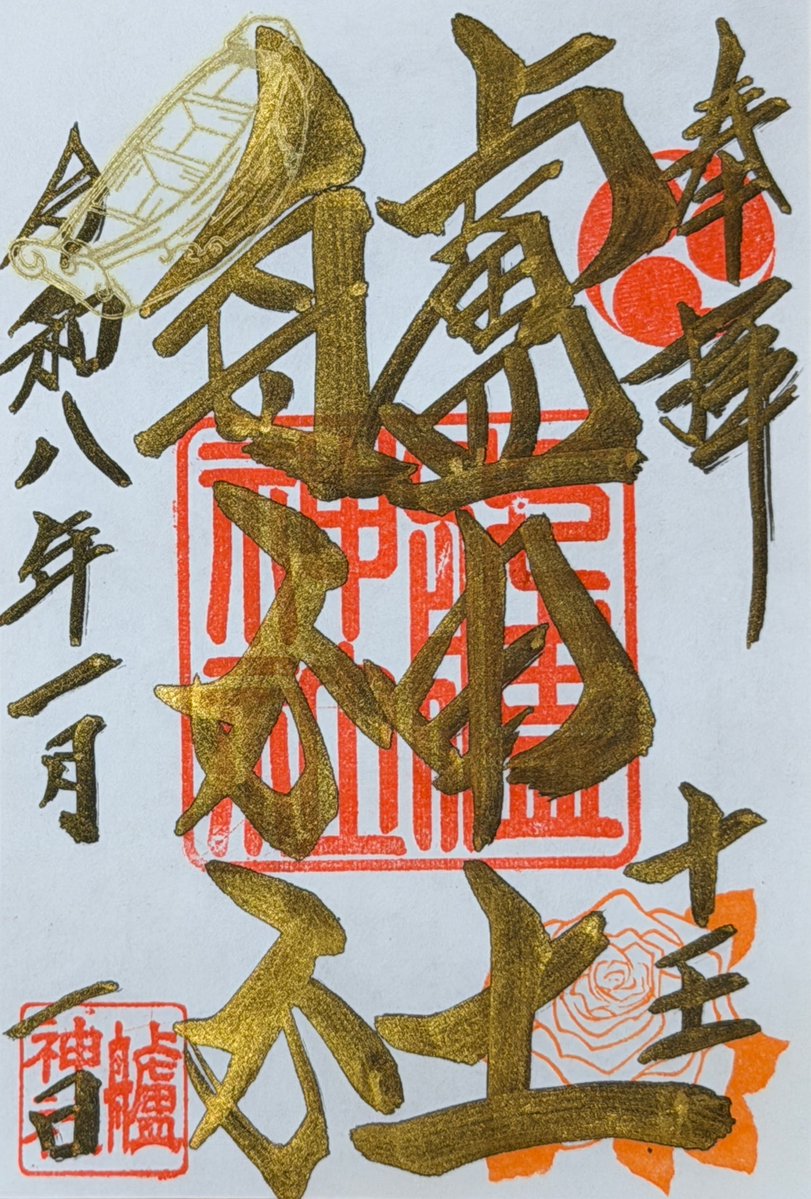 奉拝
十王
艫神社
艫神社
令和八年一月一日
艫神社